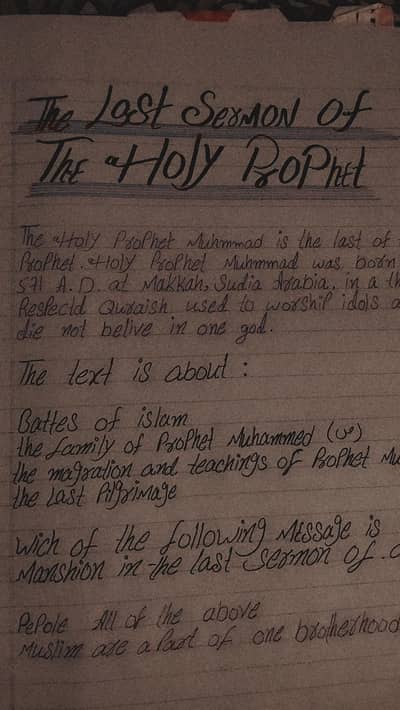 The Last Sermon Of
The Holy Prophet
The Holy Prophet Muhmmad is the last of
Prophet. Holy Prophet Muhmmad was born
571 A.D. at Makkah, Sudia Arabia, in a th
Respectd Quraish used to worship idols a
die not belive in one god.
The text is about :
Battes of islam
the family of Prophet Muhammed (ص)
the magration and teachings of Prophet Mu
the Last Pilgrimage
Wich of the following Message is
Manshion in the last sermon of
PePole All of the above
Muslim are a Part of one brotherhood